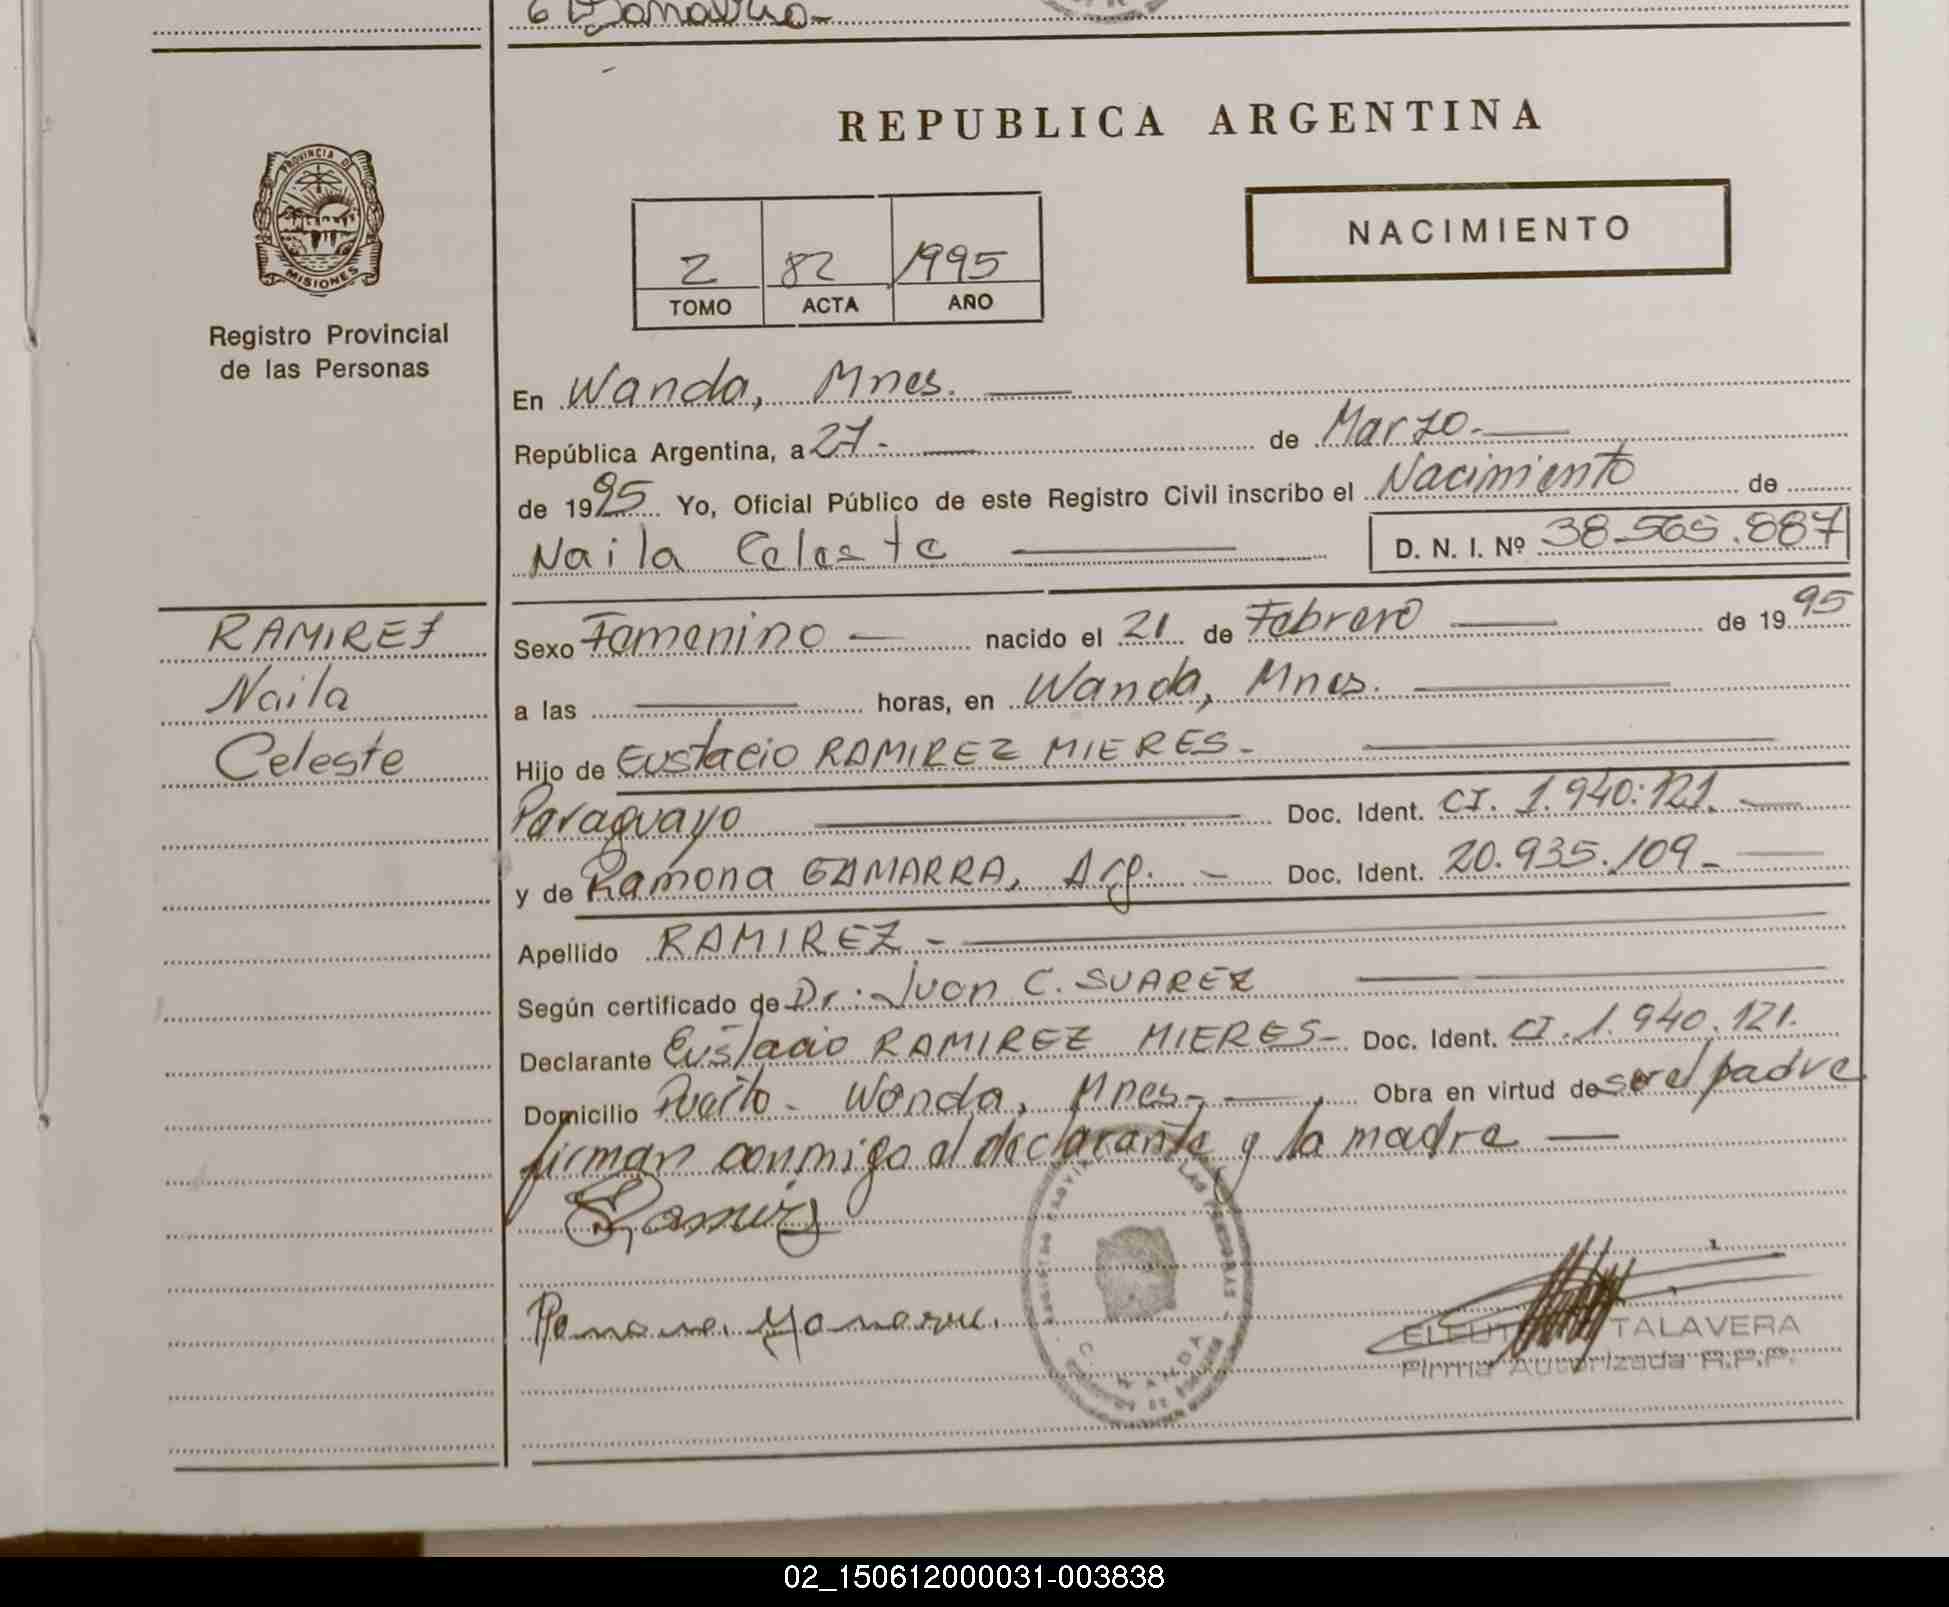 REPUBLICA ARGENTINA
PROVINCIA DE
MISIONES
Registro Provincial
de las Personas
2 82 1995
TOMO ACTA AÑO
NACIMIENTO
En Wanda, Mnes.
República Argentina, a 27.- de Marzo.-
de 1995 Yo, Oficial Público de este Registro Civil inscribo el Nacimiento de
Naila Celeste D. N. I. Nº 38.565.887
RAMIREZ
Naila
Celeste
Sexo Femenino nacido el 21 de Febrero de 1995
a las horas, en Wanda, Mnes.
Hijo de Eustacio RAMIREZ MIERES.-
Paraguayo Doc. Ident. CI. 1.940.121.
y de Ramona GAMARRA, Arg. Doc. Ident. 20.935.109.-
Apellido RAMIREZ.-
Según certificado de Dr. Juan C. SUAREZ
Declarante Eustacio RAMIREZ MIERES- Doc. Ident. CI. 1.940.121.
Domicilio Puerto - Wanda, Mnes.- Obra en virtud de ser el padre
firman conmigo el declarante y la madre
TALAVERA
Firma Autorizada R.P.P.
WANDA
02_150612000031-003838